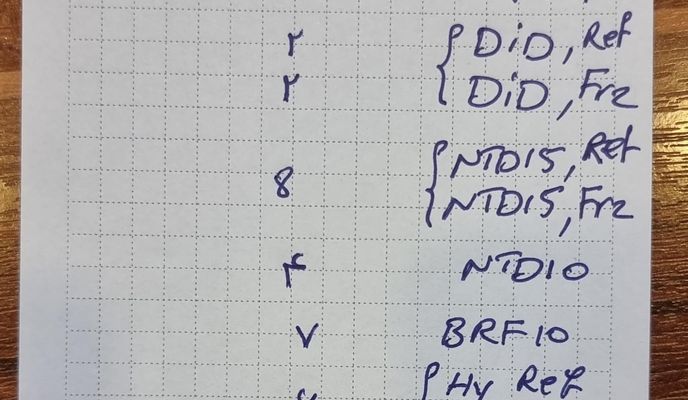 ۲ { DiD, Ref
۲ { DiD, Frz
{ NTD15, Ref
8
{ NTD15, Frz
۴ NTD10
۷ BRF10
{ Hy Ref